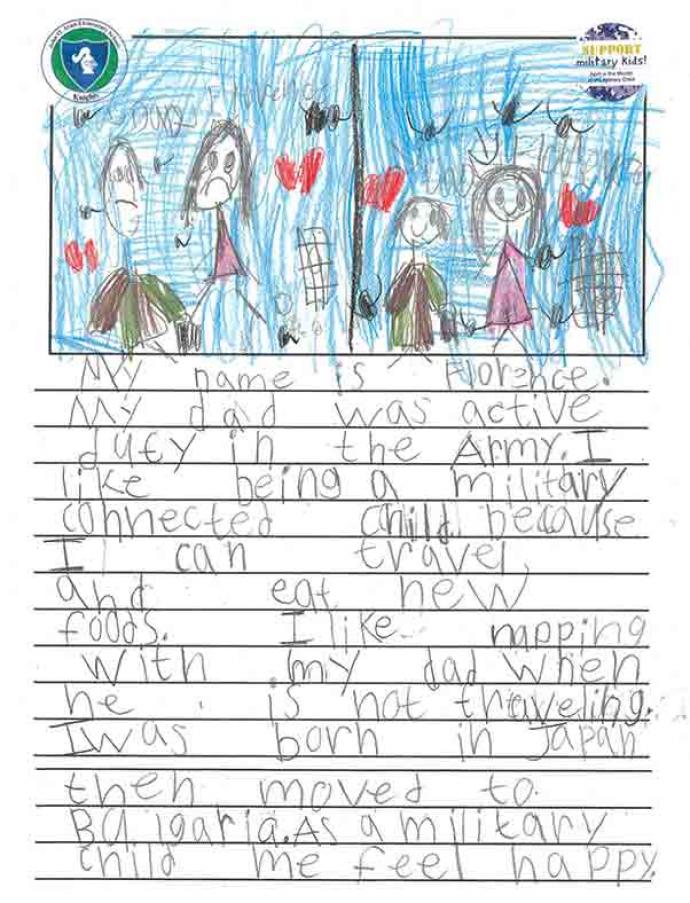 Elementary School
Knights
SUPPORT
military Kids!
April is the Month
of the Military Child
Dad Florence
Dad Florence
My name is Florence.
My dad was active
duty in the Army. I
like being a military
connected child because
I can travel
and eat new
foods. I like napping
with my dad when
he is not traveling.
I was born in Japan
then moved to
BUlgaria. As a military
child me feel happy.